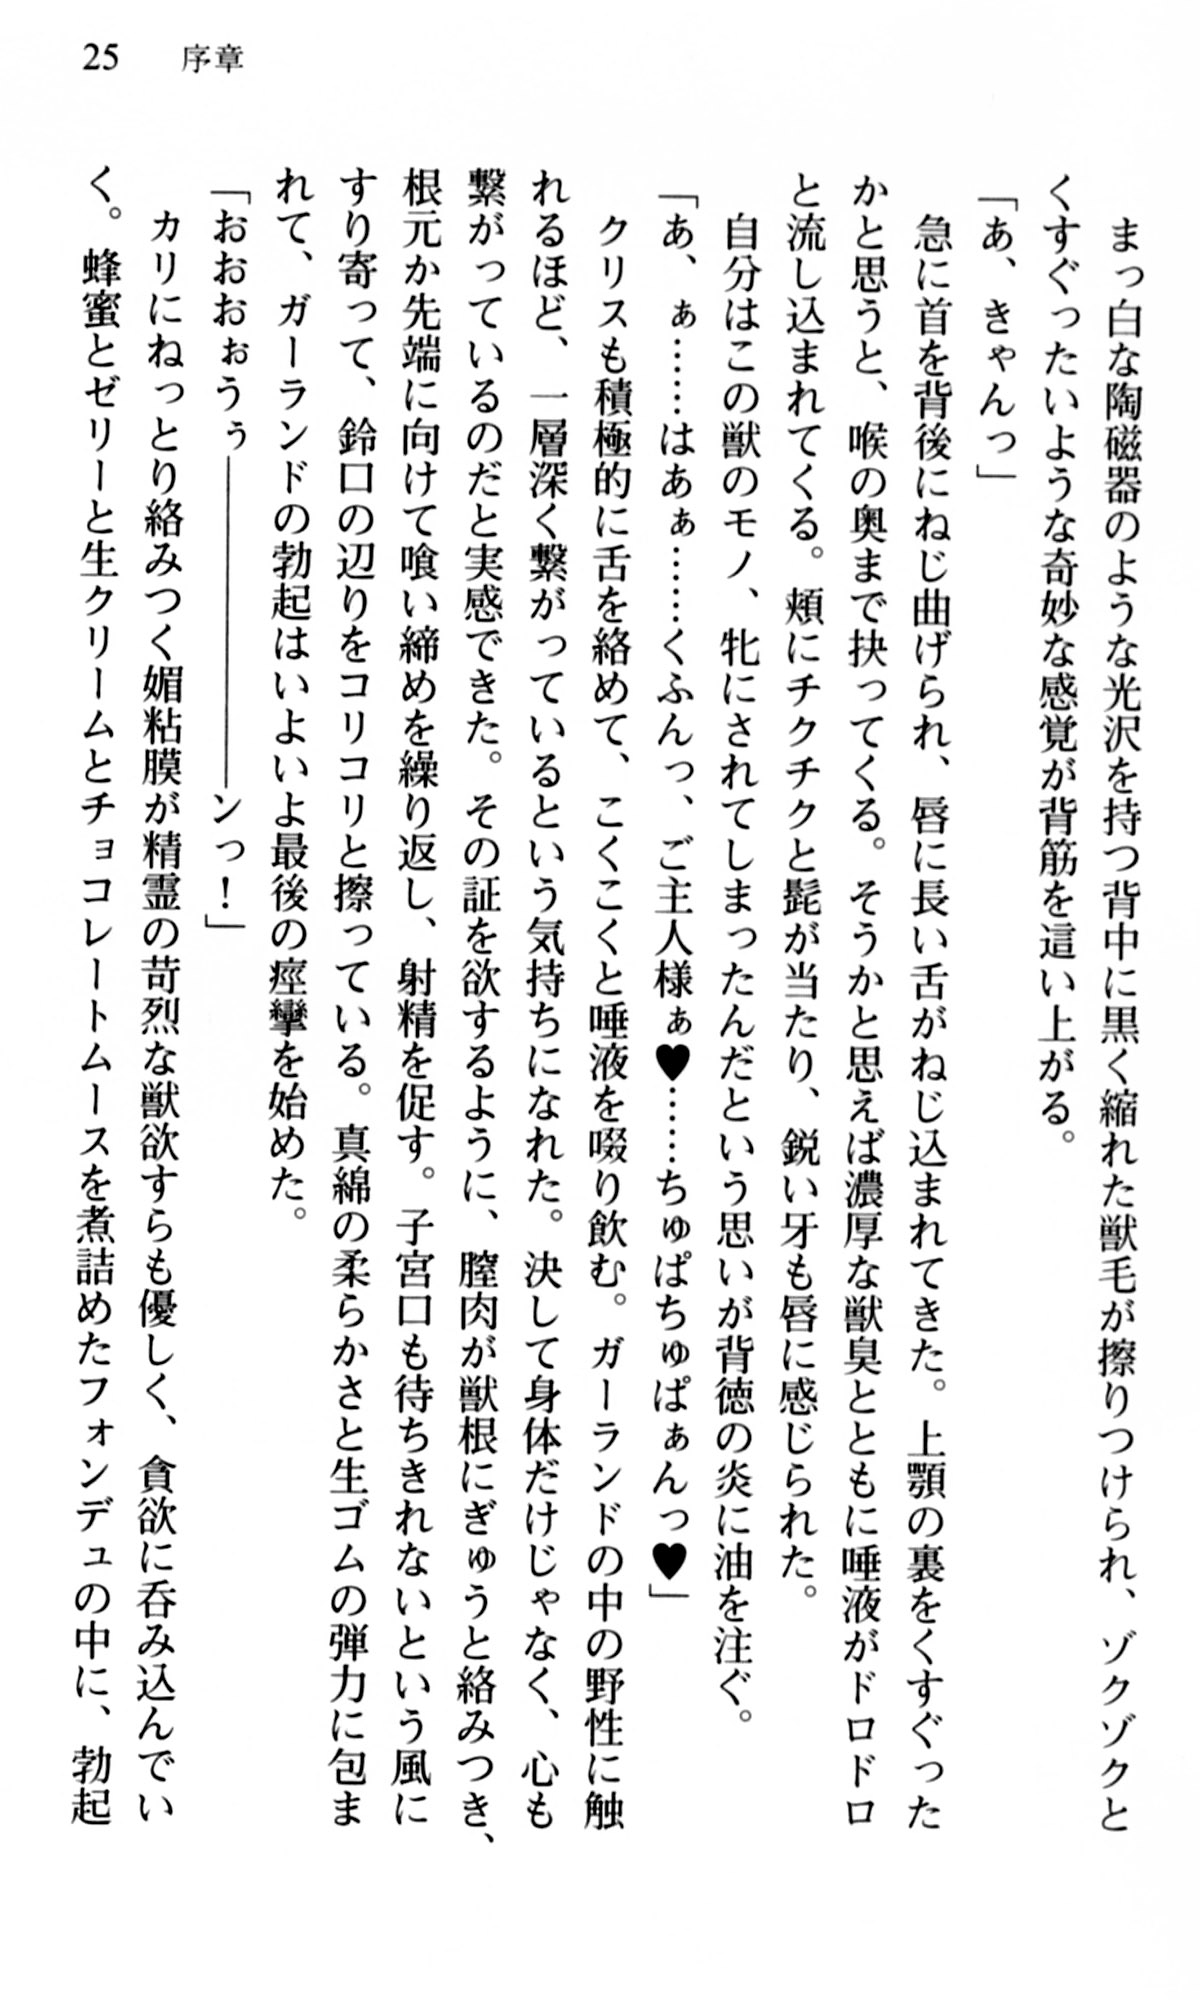 25　序章
　まっ白な陶磁器のような光沢を持つ背中に黒く縮れた獣毛が擦りつけられ、ゾクゾクと
くすぐったいような奇妙な感覚が背筋を這い上がる。
「あ、きゃんっ」
　急に首を背後にねじ曲げられ、唇に長い舌がねじ込まれてきた。上顎の裏をくすぐった
かと思うと、喉の奥まで抉ってくる。そうかと思えば濃厚な獣臭とともに唾液がドロドロ
と流し込まれてくる。頬にチクチクと髭が当たり、鋭い牙も唇に感じられた。
　自分はこの獣のモノ、牝にされてしまったんだという思いが背徳の炎に油を注ぐ。
「あ、ぁ……はあぁ……くふんっ、ご主人様ぁ♥……ちゅぱちゅぱぁんっ♥」
　クリスも積極的に舌を絡めて、こくこくと唾液を啜り飲む。ガーランドの中の野性に触
れるほど、一層深く繋がっているという気持ちになれた。決して身体だけじゃなく、心も
繋がっているのだと実感できた。その証を欲するように、膣肉が獣根にぎゅうと絡みつき、
根元か先端に向けて喰い締めを繰り返し、射精を促す。子宮口も待ちきれないという風に
すり寄って、鈴口の辺りをコリコリと擦っている。真綿の柔らかさと生ゴムの弾力に包ま
れて、ガーランドの勃起はいよいよ最後の痙攣を始めた。
「おおおぉうぅ――――――ンっ！」
　カリにねっとり絡みつく媚粘膜が精霊の苛烈な獣欲すらも優しく、貪欲に呑み込んでい
く。蜂蜜とゼリーと生クリームとチョコレートムースを煮詰めたフォンデュの中に、勃起